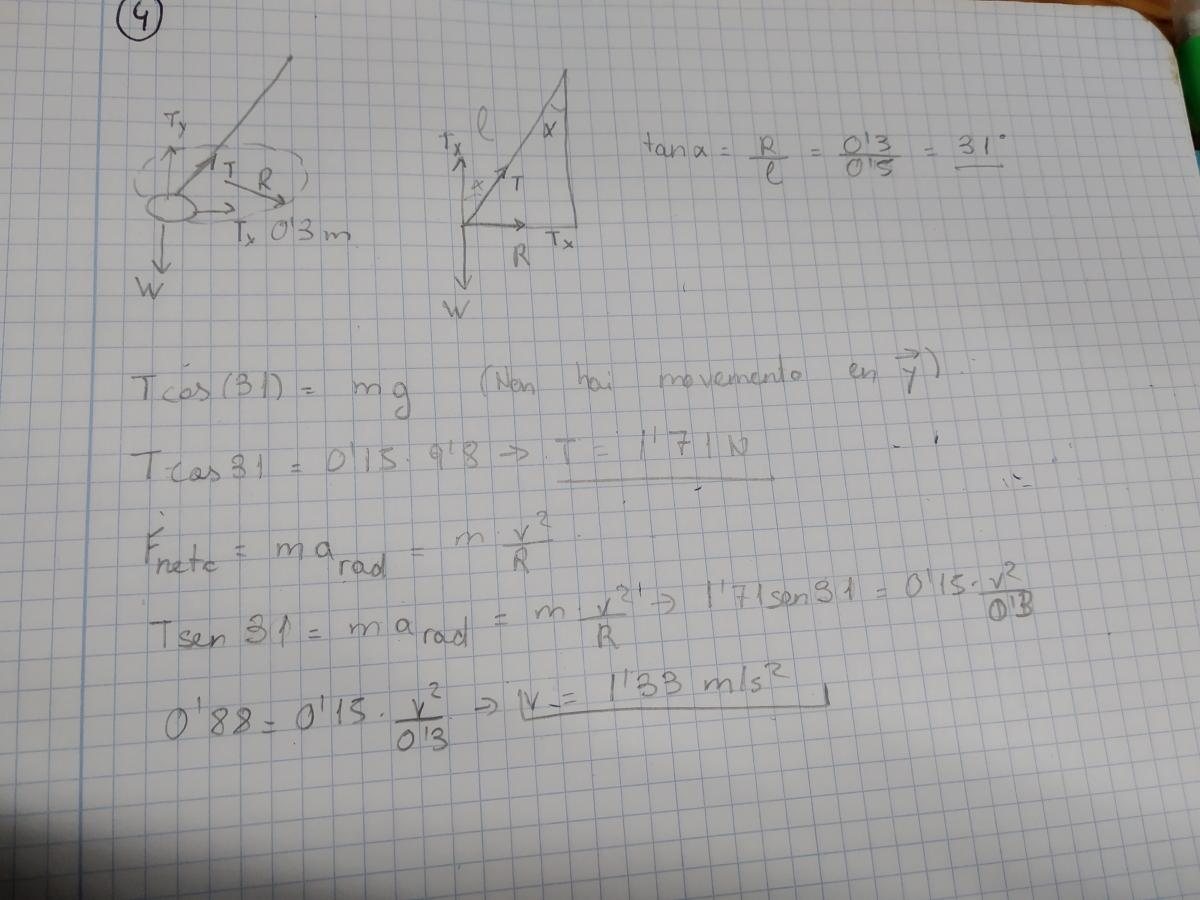 4
Ty
T
R
Tx 0'3 m
W
l
Tx
α
α
T
R
Tx
W
tan α = R/l = 0'3/0'5 = 31°
T cos(31) = mg (Non hai movemento en y⃗).
T cos 31 = 0'15 · 9'8 → T = 1'71 N
Fneta = m a rad = m v²/R
T sen 31 = m a rad = m · v²/R → 1'71 sen 31 = 0'15 · v²/0'3
0'88 = 0'15 · v²/0'3 → v = 1'33 m/s²